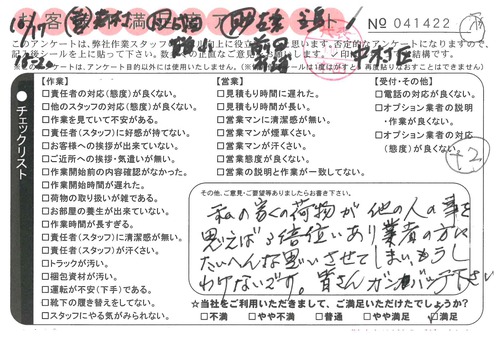 お客様満足度アンケート
No 041422
10/17
このアンケートは、弊社作業スタッフ
【作業】
□責任者(態度)が良くない。
□他のスタッフの対応(態度)が良くない。
□作業を見ていて不安がある。
□責任者(スタッフ)に好感が持てない。
□お客様への挨拶が出来ていない。
□ご近所への挨拶・気遣いが無い。
□作業開始前の内容確認がなかった。
□作業開始時間が遅れた。
□荷物の取り扱いが雑である。
□お部屋の養生が出来ていない。
□作業時間が長すぎる。
□責任者(スタッフ)に清潔感が無い。
□責任者(スタッフ)が汗くさい。
□トラックが汚い。
□梱包資材が汚い。
□運転が不安(下手)である。
□靴下の履き替えをしてない。
□スタッフにやる気がみられない。
チェックリスト
【営業】
□見積もり時間に遅れた。
□見積もり時間が長い。
□営業マンに清潔感が無い。
□営業マンが煙草くさい。
□営業マンが汗くさい。
□営業態度が良くない。
□営業の説明と作業が一致してない。
【受付・その他】
□電話の対応が良くない。
□オプション業者の説明
・作業が良くない。
□オプション業者の対応
(態度)が良くない。
+2
その他、ご意見・ご要望等ありましたらお書き下さい。
私の家くの荷物が他の人の事を
思えば3倍位いあり業者の方に
たいへんな思いさせてしまいもうし
わけないです。皆さんガンバッテ下さい
☆当社をご利用いただきまして、ご満足いただけたでしょうか?
□不満 □やや不満 □普通 □やや満足 □満足